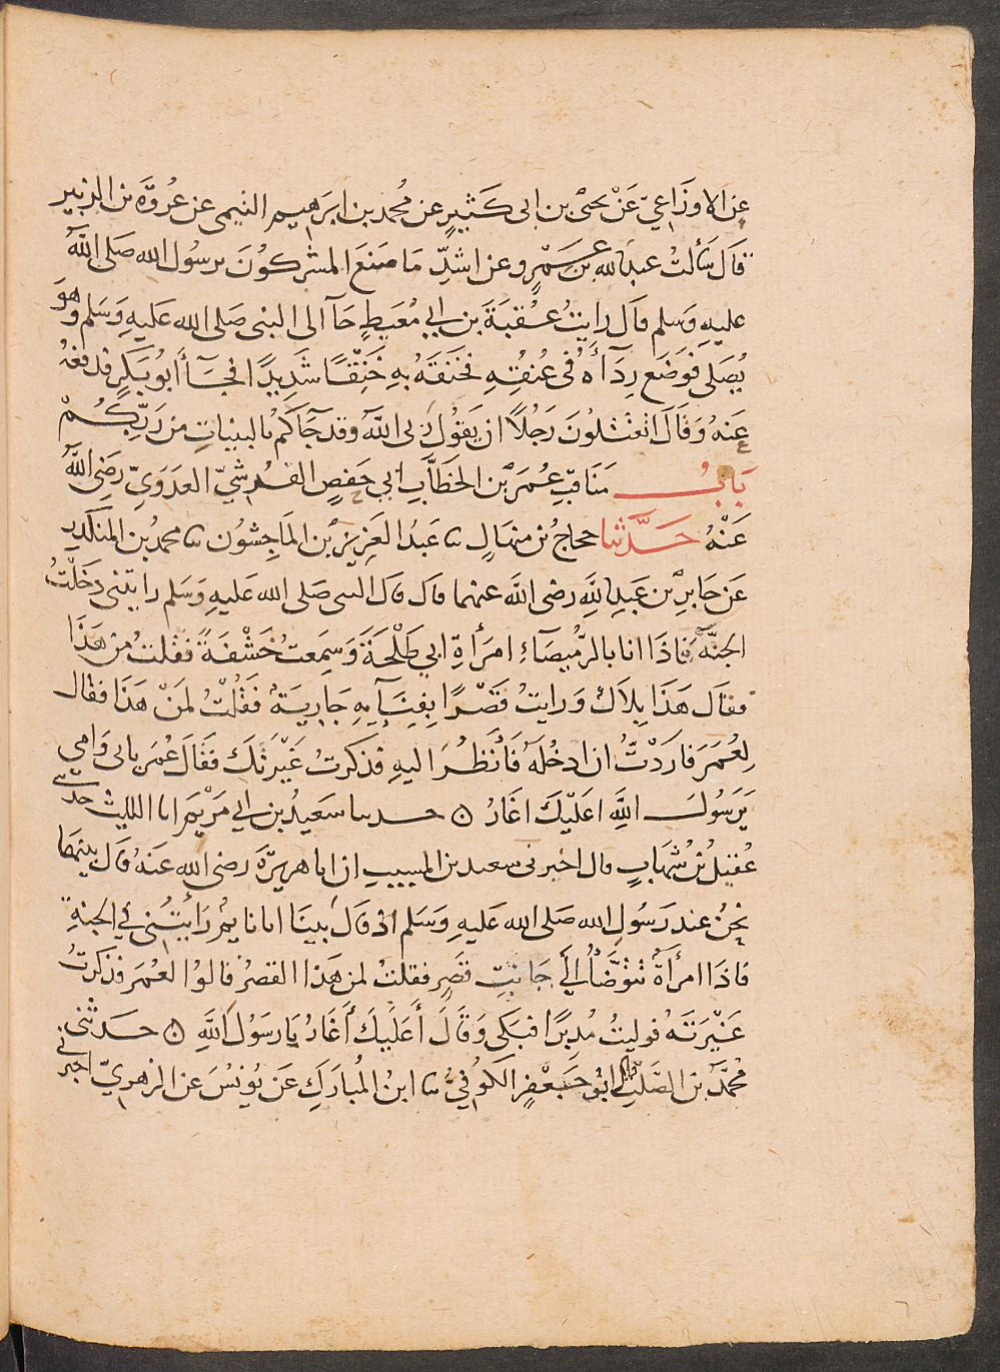 عن الاوزَاعيّ عَنْ يحيَى بن ابى كَثيرٍ عن مُحمد بن ابرَاهيم التيمى عن عُروَةَ بن الزبير
قالَ سَألتُ عبدَ الله بن عَمْرٍو عن اشدِّ مَا صَنعَ المشركُونَ برسُول الله صَلى اللهُ
عليهِ وَسَلم قال رايتُ عُقبَةَ بن ابي مُعَيطٍ جَآ الى النبى صَلى الله عَليهِ وَسَلم وَهوَ
يُصَلى فوَضَع رِدَآءَهُ فى عُنقِهِ فخنَقَهُ بهِ خَنِقًا شَدِيدًا فجَآأَ ابُو بَكرٍ فدفعَهُ
عَنهُ وَقالَ اتقتلُونَ رَجُلًا ان يَقُولَ رَبى اللهُ وَقد جَآكُم بالبيناتِ من رَبِّكُمْ
بَابُ مَنَاقبِ عُمَرَ بْن الخَطَّابِ ابي حَفصٍ القُرشيّ العَدَوَيِّ رَضِىَ اللهُ
عَنْهُ حَدَّثنا حجاجُ بن منهَالٍ ثنا عَبدُ العَزيزِ بْن المَاجِشُون ثنا محمدُ بن المنكَدِر
عَن جَابرِ بْن عَبدِ اللهِ رضى اللهَ عنهما قال قال النبى صَلى الله عَليهِ وَسَلم رايتنى دَخَلْتُ
الجنَّةَ فاذَا انا بالرُّميصَآءِ امرَأةِ ابي طَلْحَةَ وَسَمِعتُ خَشْفَةً فقلتُ من هَذَا
فقَال هَذَا بِلاَل وَرايتُ قَصْرًا بفِنَآيهِ جَاريَةٌ فَقُلْتُ لمَنْ هَذَا فقال
لِعُمَرَ فارَدْتُ ان ادخُلَهُ فَأنظُرَ اليهِ فذكرتُ غَيْرَتَك فقَالَ عُمَر بابى وَامى
يَرَسُولَ اللهِ اعَلَيْكَ اغَارُ ه حدثنا سَعيدُ بن ابي مَرْيَمَ انا الليث حدثنى
عُقيلُ بن شهَابٍ قال اخبرنى سعيد بن المسيبِ ان ابا هريرَةَ رضى الله عَنهُ قَالَ بينمَا
نحنُ عند رَسُولِ الله صَلى الله عَليهِ وَسَلم اذ قالَ بينَا انا نايمٌ رَايتُنى في الجنةِ
فاذَا امرأةٌ تتوَضَّأُ الَى جَانبِ قَصرٍ فقلتُ لمن هَذا القصرُ قالوُا لعُمَر فذكرتُ
غَيْرَتَهُ فوليتُ مُدبرًا فبَكى وَقالَ أَعَلَيكَ أَغَارُ يا رَسُولَ اللهِ ه حَدثنى
مُحمَّدُ بن الصَّلتِ ابُو جَعْفرٍ الكوفيُّ ثنا ابنُ المُبارَكِ عَن يُونسَ عن الزهريّ اخبرنى